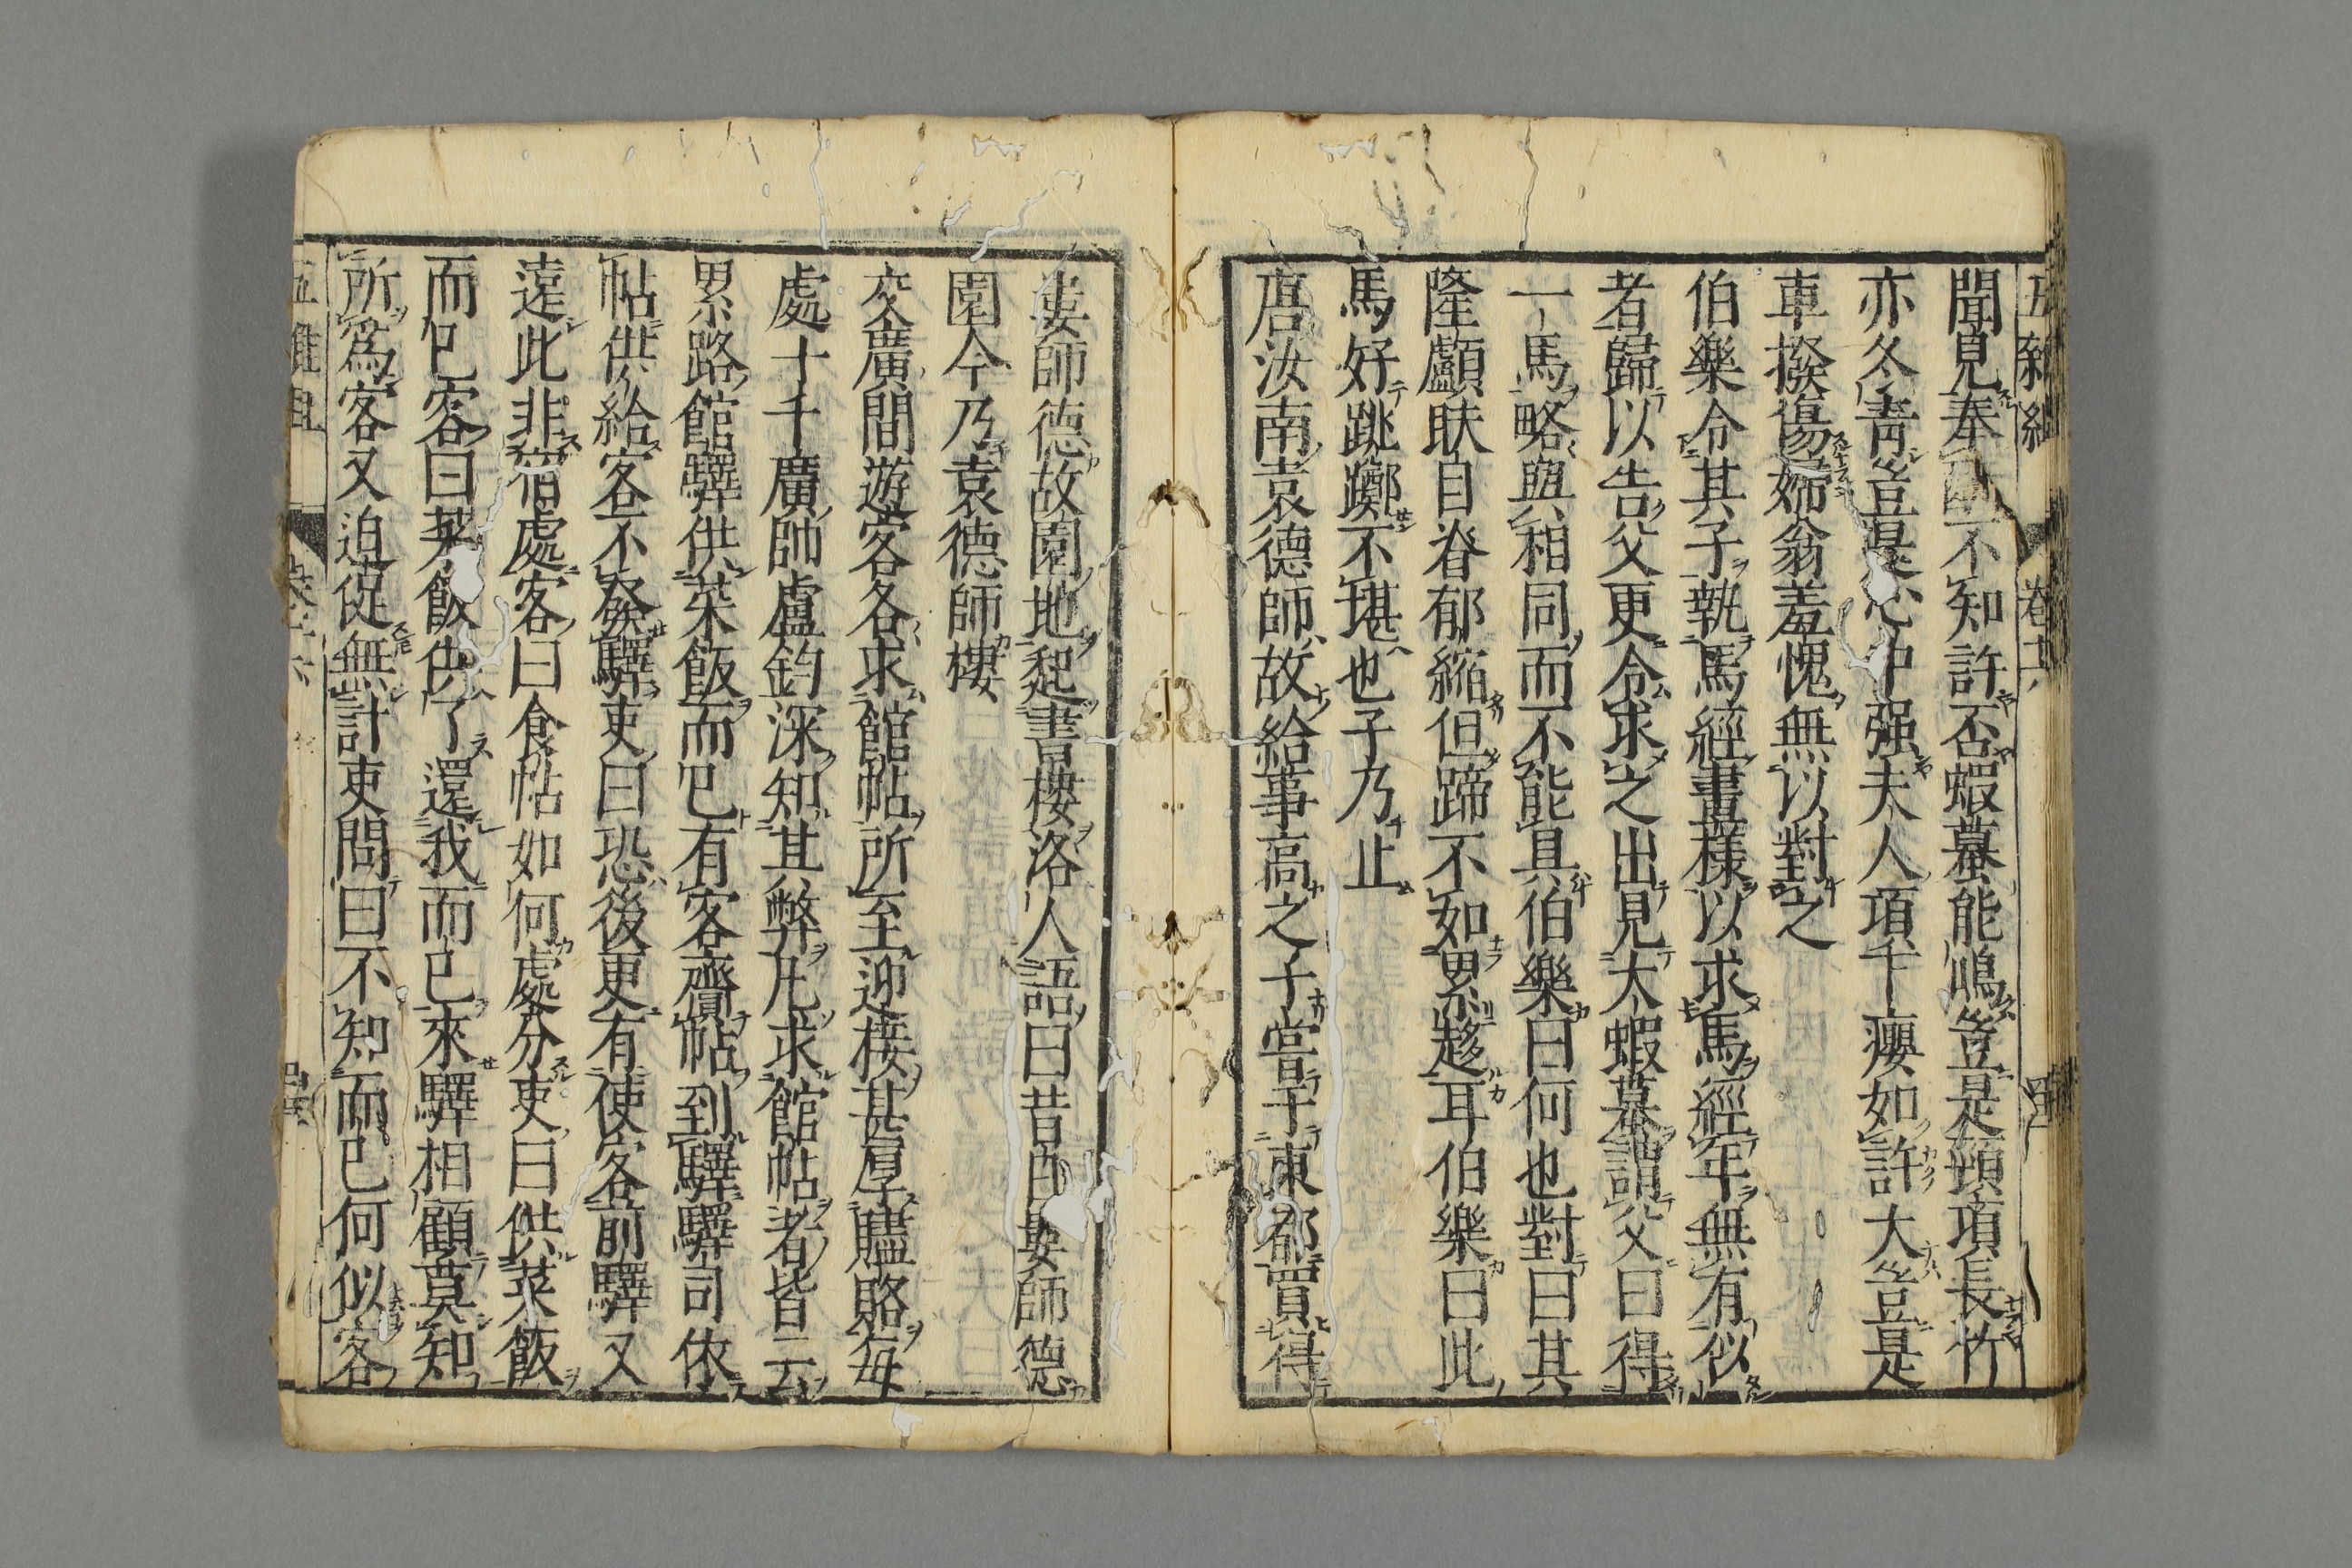 聞見奉不知許否蝦蟇能鳴豈是頸項長竹
亦冬青豈是心中强夫人項下癭如許大豈是
車撥傷婦翁羞愧無以對之
伯樂令其子執馬經畫樣以求馬經年無有似
者歸以告父更令求之出見大蝦蟇謂父曰得
一馬略與相同而不能具伯樂曰何也對曰其
隆顱眣自脊郁縮但蹄不如累趍耳伯樂曰此
馬好跳躑不堪也子乃止
唐汝南袁德師故給事高之子嘗于東都買得
婁師德故園地起書樓洛人語曰昔日婁師德
園今乃袁德師樓
交廣間遊客各求館帖所至迎接甚厚贐賂每
處十千廣帥盧鈞深知其弊凡求館帖者皆云
累路館驛供菜飯而已有客齎帖到驛驛司依
帖供給客不發驛吏曰恐後更有使客前驛又
遠此非宿處客曰食帖如何處分吏曰供菜飯
而已客曰菜飯供了還我而已來驛相顧莫知
所爲客又迫促無計吏問曰不知而已何似客